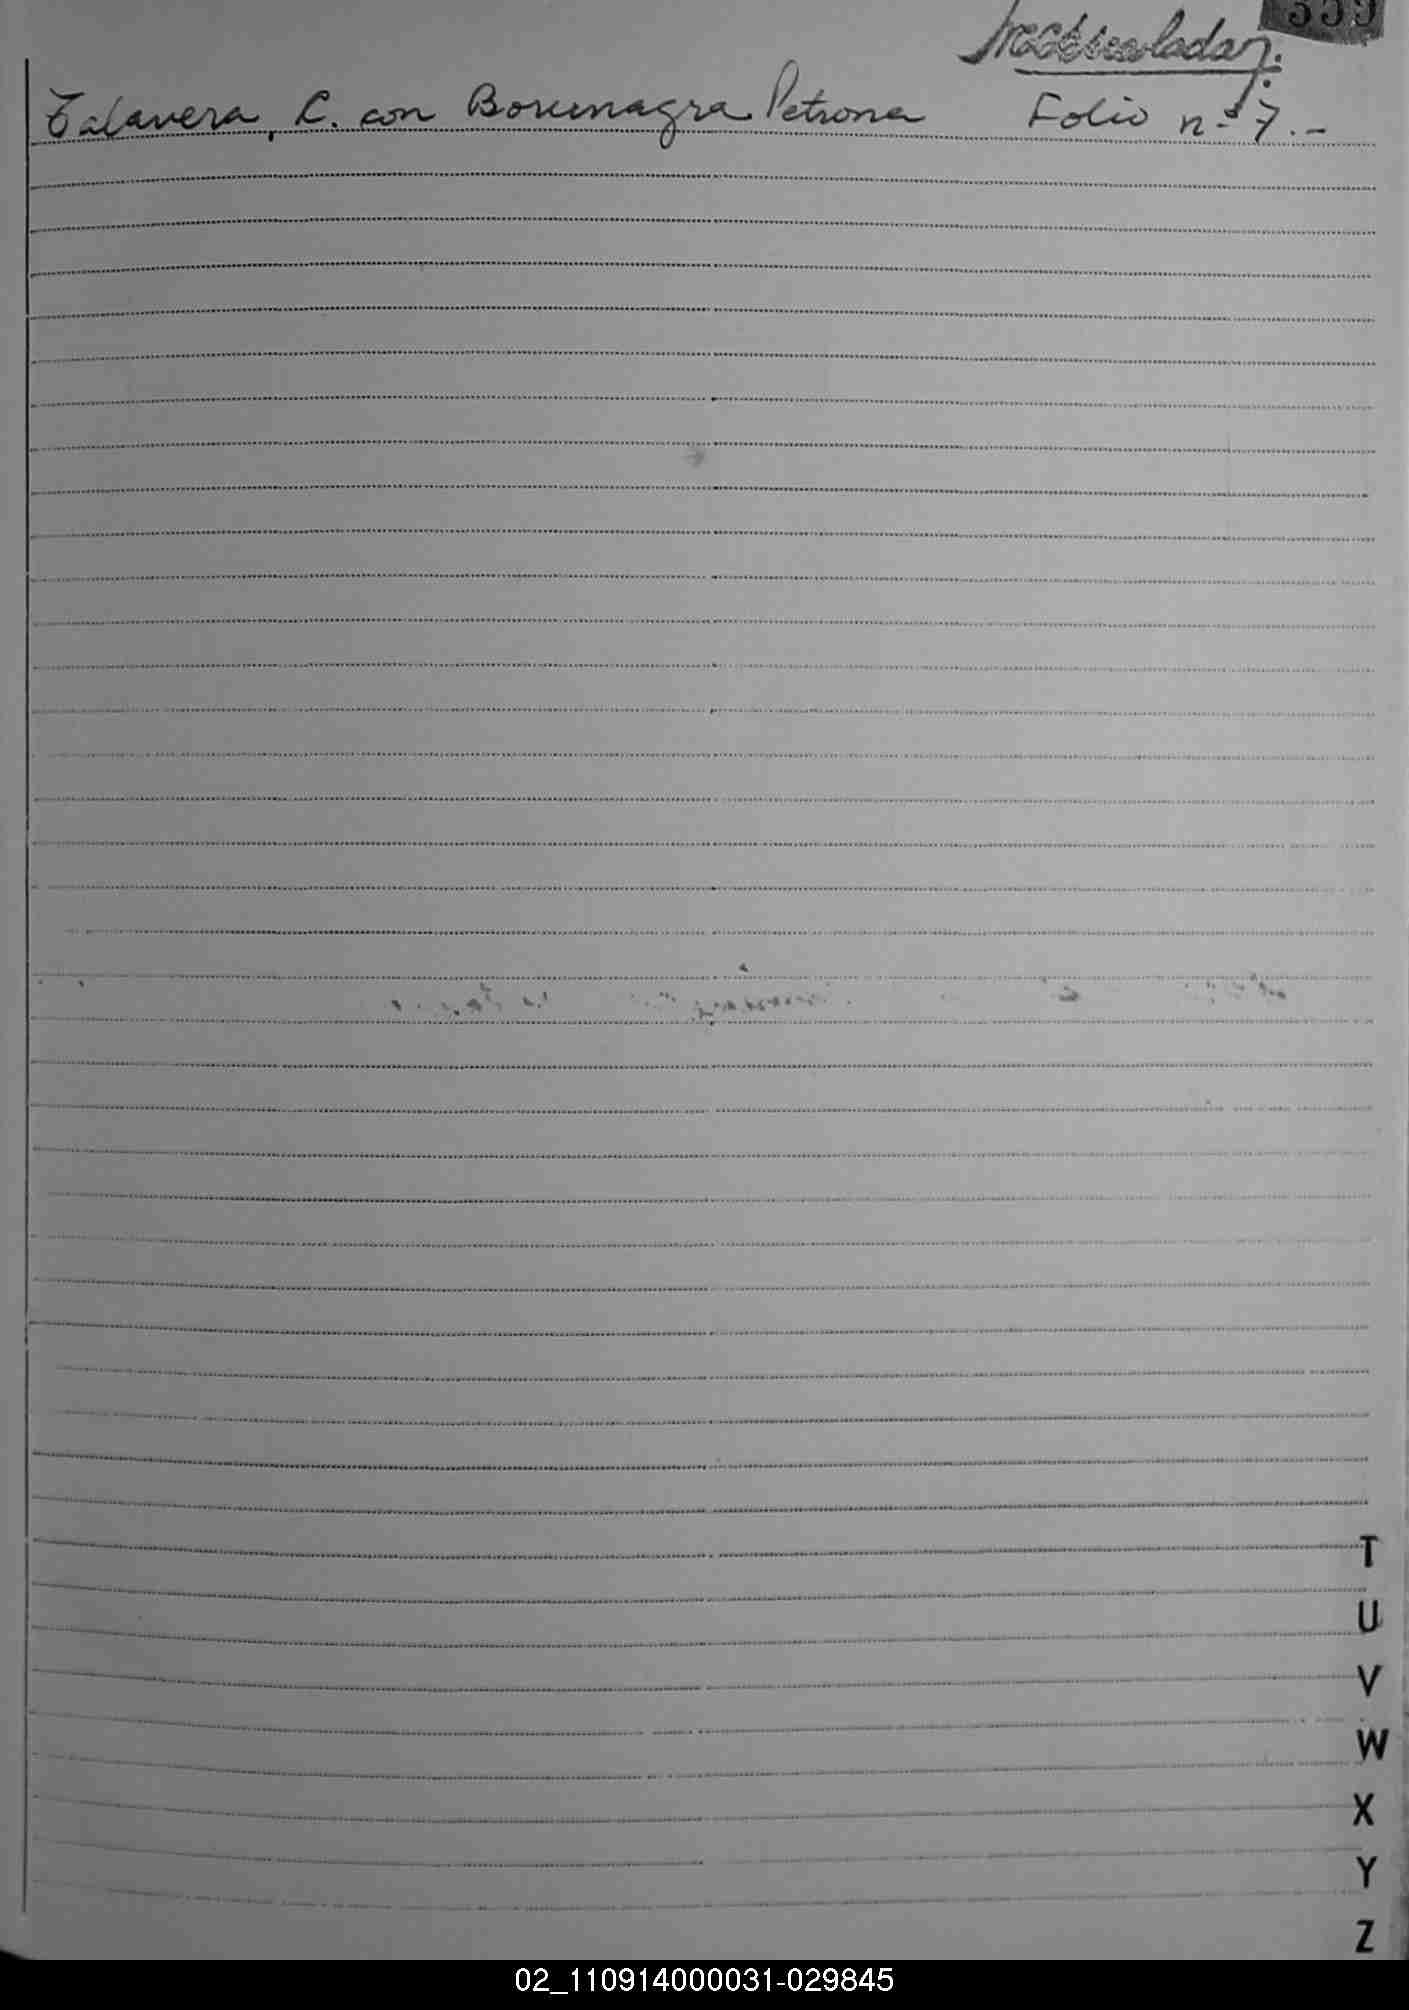 359
Talavera, C. con Petrona Folio nº 7.-
T
U
V
W
X
Y
Z
02_110914000031-029845